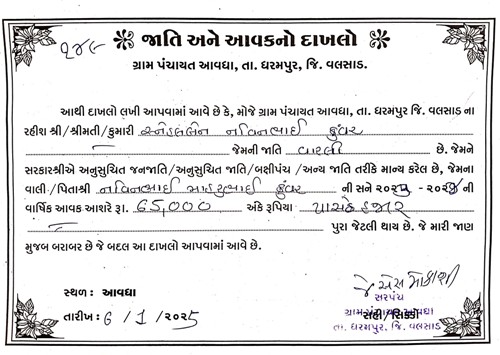 ૨૪૯
જાતિ અને આવકનો દાખલો
ગ્રામ પંચાયત આવધા, તા. ધરમપુર, જિ. વલસાડ.
આથી દાખલો લખી આપવામાં આવે છે કે, મોજે ગ્રામ પંચાયત આવધા, તા. ધરમપુર જિ. વલસાડ ના
રહીશ શ્રી/શ્રીમતી/કુમારી સ્નેહલબેન નવિનભાઈ કુંવર
જેમની જાતિ વારલી છે. જેમને
સરકારશ્રીએ અનુસુચિત જનજાતિ/અનુસુચિત જાતિ/બક્ષીપંચ /અન્ય જાતિ તરીકે માન્ય કરેલ છે, જેમના
વાલી/પિતાશ્રી નવિનભાઈ માહદુભાઈ કુંવર ની સને ૨૦૨૫ - ૨૦૨ ની
વાર્ષિક આવક આશરે રૂા. 65,000 અંકે રૂપિયા પાસઠ હજાર
પુરા જેટલી થાય છે. જે મારી જાણ
મુજબ બરાબર છે જે બદલ આ દાખલો આપવામાં આવે છે.
સ્થળ : આવધા
તારીખ : 6/1/2025
સરપંચ
ગ્રામ પંચાયત આવધા
સહી/સિક્કો
તા. ધરમપુર, જિ. વલસાડ